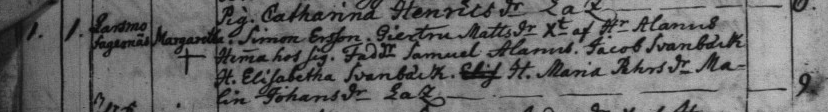 Pig. Catharina Henrics Dr Laz
1. 1. Larsmo Fagernäs Margaretha : Simon Ersson. Giertru Matts Dr Xt af Hr Alanus
Hema hos sig. Faddr Samuel Alanus. Jacob Svanbäck
H. Elisabetha Svanbäck. H. Maria Pehrs Dr Ma-
lin Johans Dr Laz 9